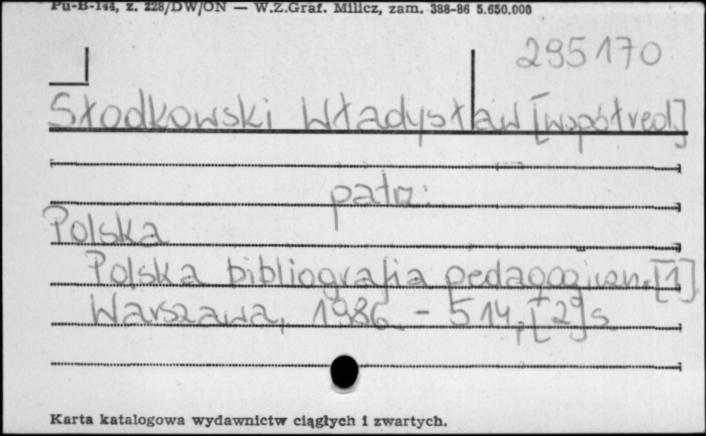 Pu-B-144, z. 228/DW/ON — W.Z.Graf. Milicz, zam. 388-86 5.650.000
295170
Słodkowski Władysław [współred.]
patrz:
Polska
Polska bibliografia pedagogiczn. [1]
Warszawa, 1986. - 514, [2] s.
Karta katalogowa wydawnictw ciągłych i zwartych.